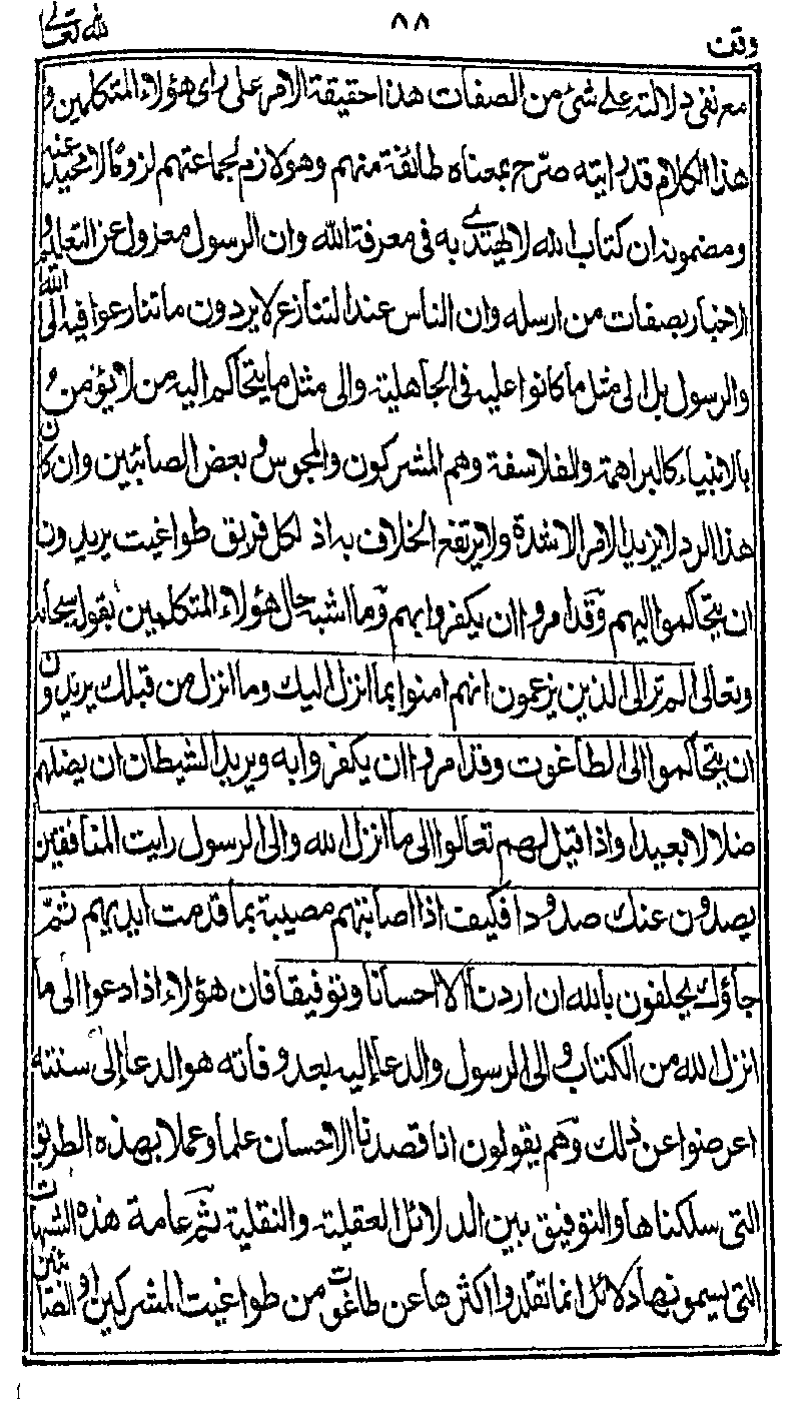 لله تعالى ٨٨ وقت
مع نفى دلالته على شئ من الصفات هذا حقيقة الامر على راى هؤلاء المتكلمين و
هذا الكلام قد رايته صرّح بمعناه طائفة منهم وهو لازم لجماعتهم لزوما لا محيد عنه
ومضمونه ان كتاب الله لا يهتدى به فى معرفة الله وان الرسول معزول عن التعليم و
الاخبار بصفات من ارسله وان الناس عند التنازع لا يردون ما تنازعوا فيه الى الله
والرسول بل الى مثل ما كانوا عليه فى الجاهلية والى مثل ما يتحاكم اليه من لا يؤمن
بالانبياء كالبراهمة والفلاسفة وهم المشركون والمجوس و بعض الصابئين وان كان
هذا الرد لا يزيد الامر الا شدة ولا يرتفع الخلاف به اذ لكل فريق طواغيت يريدون
ان يتحاكموا اليهم وقد امروا ان يكفروا بهم وما اشبه حال هؤلاء المتكلمين بقوله سبحانه
وتعالى الم تر الى الذين يزعمون انهم امنوا بما انزل اليك وما انزل من قبلك يريدون
ان يتحاكموا الى الطاغوت وقد امروا ان يكفروا به ويريد الشيطان ان يضلهم
ضلالا بعيدا واذا قيل لهم تعالوا الى ما انزل الله والى الرسول رايت المنافقين
يصدون عنك صدودا فكيف اذا اصابتهم مصيبة بما قدمت ايديهم ثمّ
جاؤك يحلفون بالله ان اردنا الا احسانا وتوفيقا فان هؤلاء اذا دعوا الى ما
انزل الله من الكتاب و الى الرسول والدعا إليه بعد وفاته هو الدعا إلى سنته
اعرضوا عن ذلك وهم يقولون انا قصدنا الاحسان علما وعملا بهذه الطريق
التى سلكناها والتوفيق بين الدلائل العقلية والنقلية ثم عامة هذه الشبهات
التى يسمونها دلائل انما تقلدوا اكثرها عن طاغوت من طواغيت المشركين و الصابئين